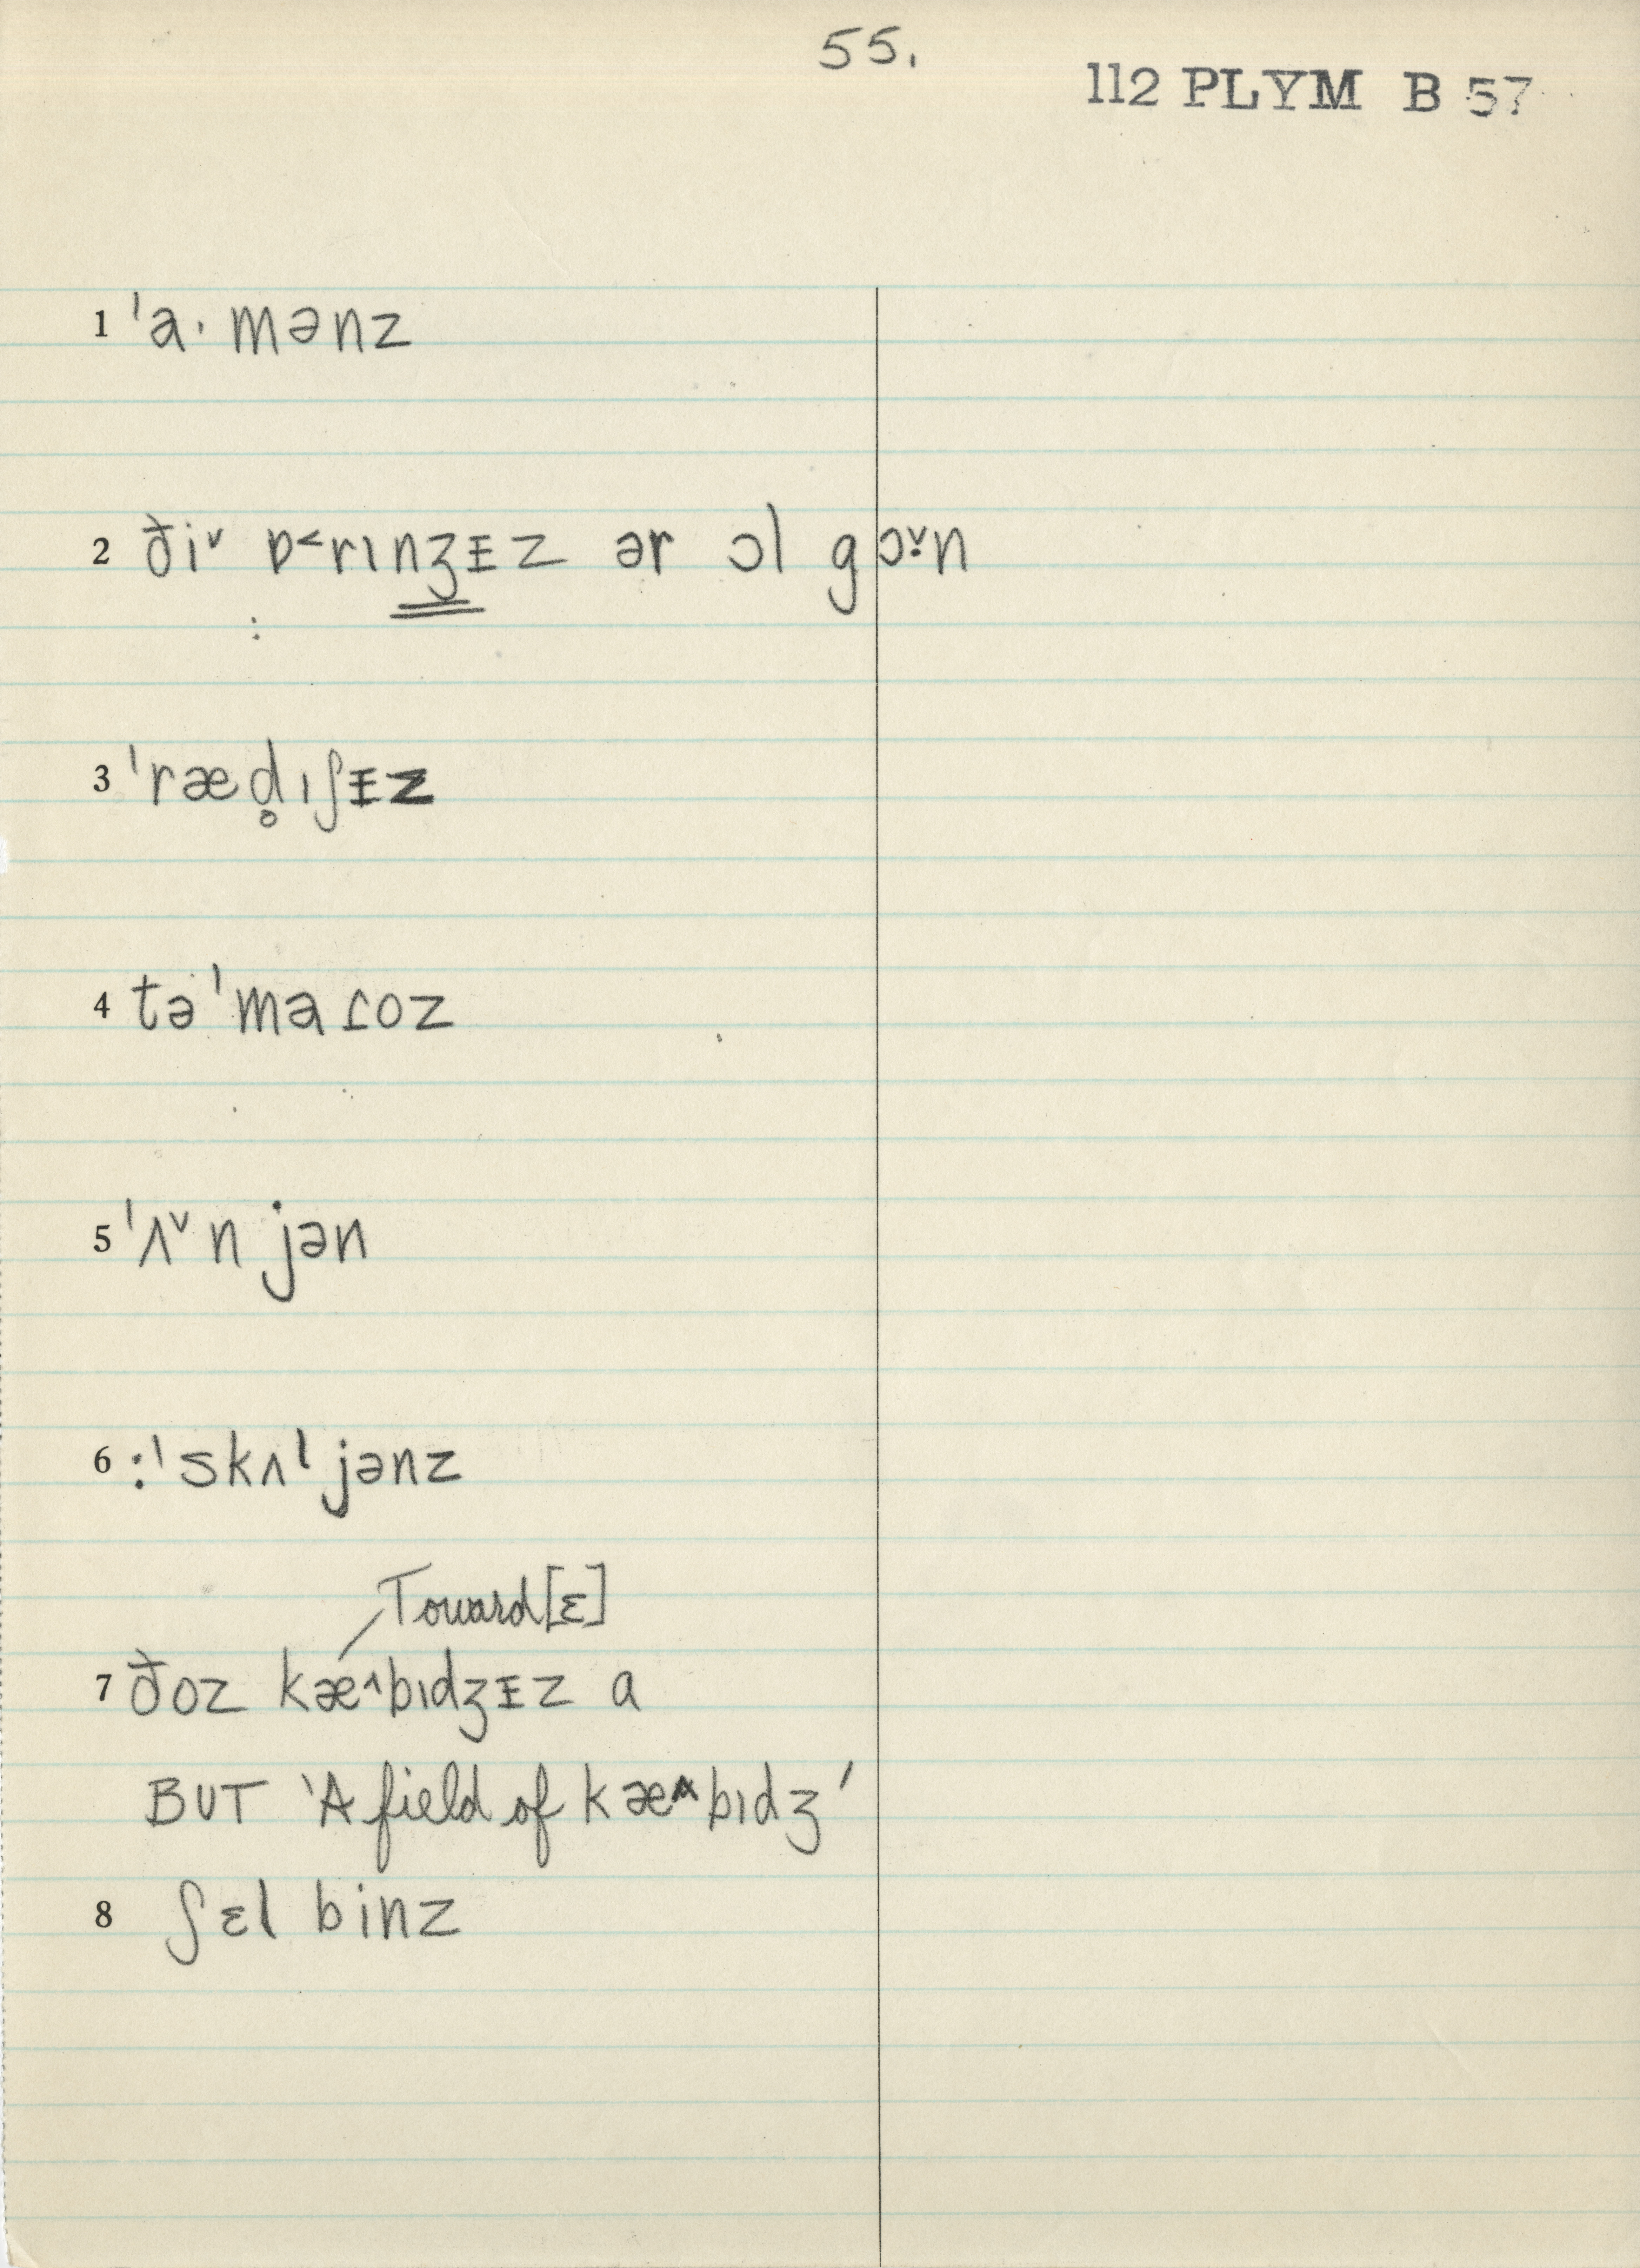 55.
112 PLYM B 57
1 ˈa· mənz
2 ðiˇ ɒ˂rɪnʒᵻz ər ɔl gɔˇ·n
:
3 ˈræd̥ɪʃᵻz
4 təˈmaɾoz
5 ˈʌˇn jən
6 :ˈskʌl jənz
Toward [ɛ]
7 ðoz kæ^bɪdʒᵻz a
BUT 'A field of kæ^bɪdʒ'
8 ʃɛl binz